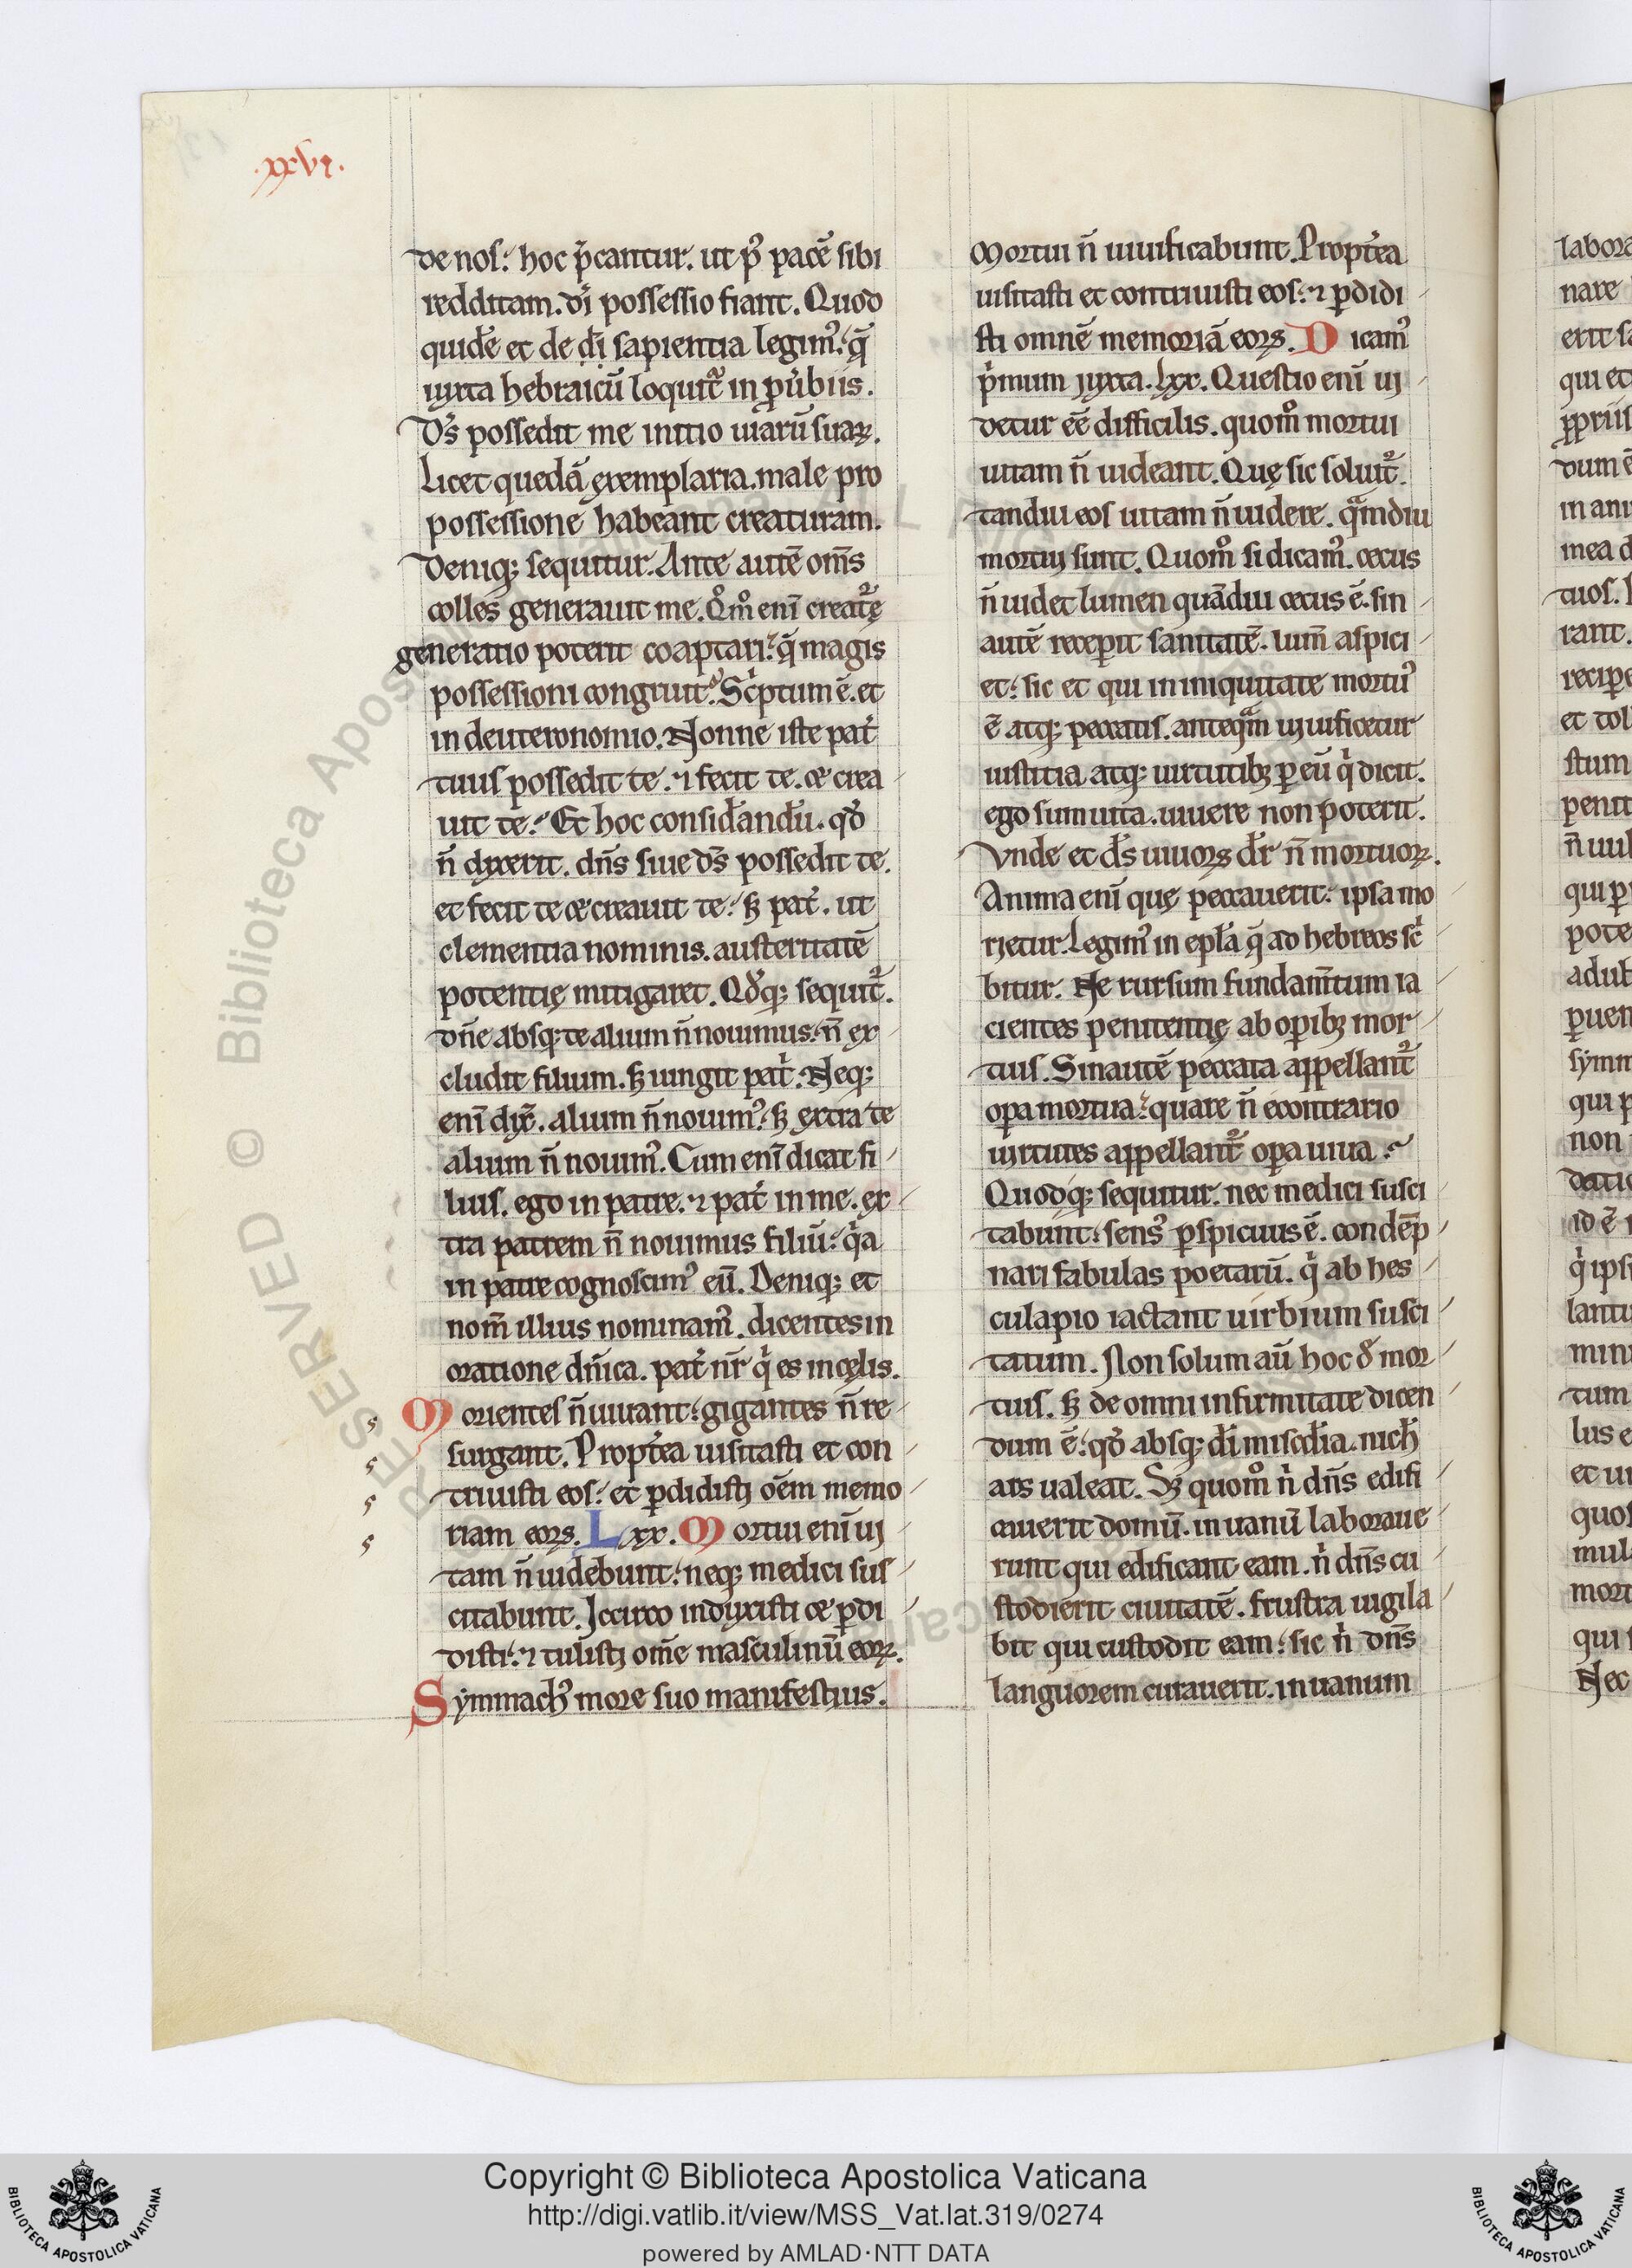 .xxvi.
de nos: hoc p̄cantur. ut p᷒ pacē sibi
redditam. dī possessio fiant. Quod
quidē et de dī sapientia legim᷒: q̄
iuxta hebraicū loquit᷑ in puerbiis.
Ds̄ possedit me initio uiarū suaꝝ.
Licet quedā exemplaria. male pro
possessione habeant creaturam.
Deniq; sequitur. Ante autē om̄s
colles generauit me. Qm̊ eni creatę
generatio poterit coaptari: q̄ magis
possessioni congruit. Sc̄ptum ē. et
in deuteronomio. Nonne iste pat̄
tuus possedit te. ⁊ fecit te. & crea
uit te. Et hoc considandū. qd̄
n̄ dixerit. dn̄s siue ds̄ possedit te.
et fecit te & creauit te: ſꝫ pat̄. ut
clementia nominis. austeritatē
potentię mitigaret. Qd̄q; sequit᷑.
dn̄e absq; te alium n̄ nouimus. n̄ ex
cludit filium. ſꝫ iungit pat̄. Neq;
eni dix̄. alium n̄ nouim᷒. ſꝫ extra te
alium n̄ nouim᷒. Cum eni dicat fi
lius. ego in patre. ⁊ pat̄ in me. ex
tra patrem n̄ nouimus filiū: qa
in patre cognoscim᷒ eū. Deniq; et
nom̄ illius nominam᷒. dicentes in
oratione dn̄ica. pat̄ nr̄ q̇ es in cęlis.
Morientes n̄ uiuant: gigantes n̄ re
surgant. Propt̄ea uisitasti et con
triuisti eos: et ꝑdidisti oēm memo
riam eoꝝ. Lxx. Mortui eni ui
tam n̄ uidebunt: neq; medici sus
citabunt. Iccirco induxisti & ꝑdi
disti: ⁊ tulisti om̄e masculinū eoꝝ.
Symmach᷒ more suo manifestius.
Mortui n̄ uiuificabunt. Propt̄ea
uisitasti et contriuisti eos: ⁊ ꝑdidi
sti omnē memoriā eoꝝ. Dicam᷒
p̄mum iuxta. Lxx. Questio eni ui
detur eē difficilis. quom̊ mortui
uitam n̄ uideant. Quę sic soluit᷑.
tandiu eos uitam n̄ uidere. qᷓmdiu
mortui sunt. Quom̊ si dicam᷒. cecus
n̄ uidet lumen quādiu cecus ē. sin
autē receꝑit sanitatē. lum̄ aspici
et: sic et qui in iniquitate mortu᷒
ē atq; peccatis. anteqᷓm uiuificetur
iustitia atq; uirtutibꝫ ꝑ eū q̇ dicit.
ego sum uita. uiuere non poterit.
Vnde et ds̄ uiuoꝝ dr̄ n̄ mortuoꝝ.
Anima eni quę peccauerit: ipsa mo
rietur. Legim᷒ in epl̄a q̄ ad hebreos sc̄
bitur. Ne rursum fundam̄tum ia
cientes penitentię ab oꝑibꝫ mor
tuis. Sin autē peccata appellant᷑
oꝑa mortua: quare n̄ econtrario
uirtutes appellant᷑ oꝑa uiua.
Quodq; sequitur. nec medici susci
tabunt: sens᷒ ꝑspicuus ē. condēp
nari fabulas poetarū. q̇ ab hes
culapio iactant uirbium susci
tatum. Non solum aū hoc d̄ mor
tuis. ſꝫ de omni infirmitate dicen
dum ē: qd̄ absq; dī misc̄dia. nich̄
ars ualeat. Sꝫ quom̊ n̄ dn̄s edifi
cauerit domū. in uanū laboraue
runt qui edificant eam. n̄ dn̄s cu
stodierit ciuitatē. frustra uigila
bit qui custodit eam: sic n̄ dn̄s
languorem curauerit. in uanum
Copyright © Biblioteca Apostolica Vaticana
http://digi.vatlib.it/view/MSS_Vat.lat.319/0274
powered by AMLAD·NTT DATA
BIBLIOTECA APOSTOLICA VATICANA
BIBLIOTECA APOSTOLICA VATICANA